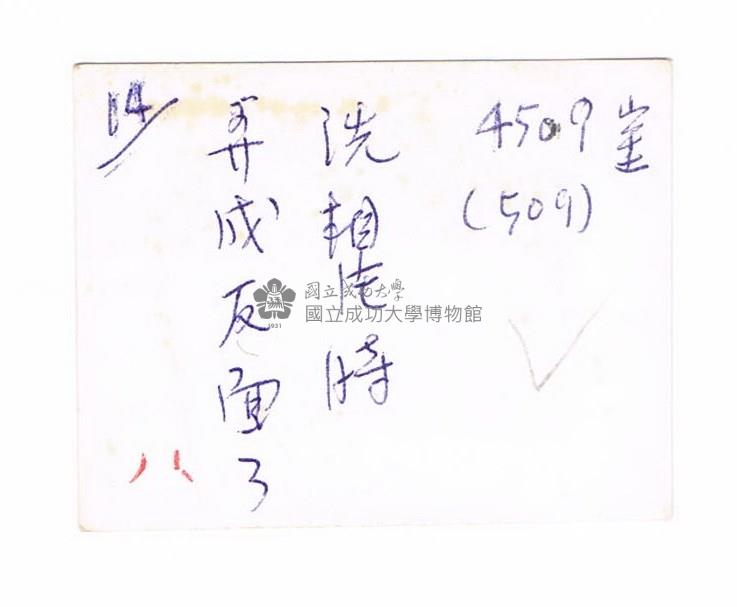 4509
(509)
洗相片時
弄成反面了
14
八
國立成功大學
國立成功大學博物館
1931